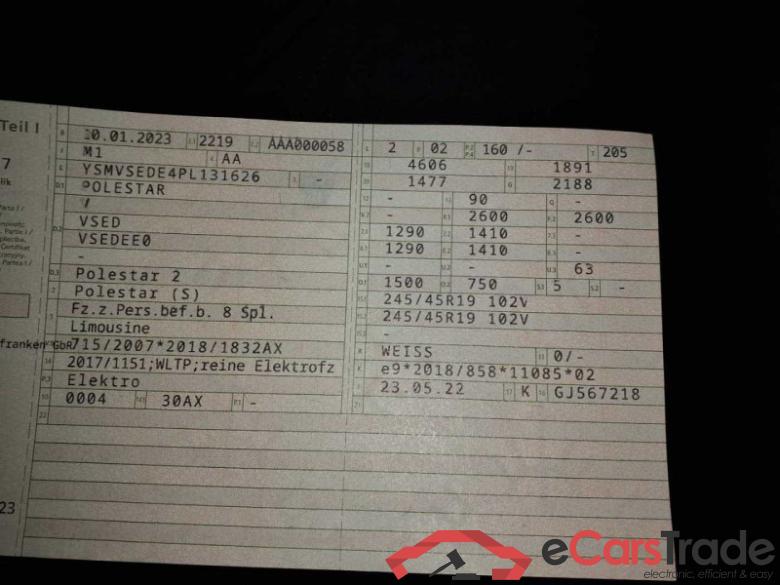 Teil I
10.01.2023 2219 AAA000058 2 02 160 /- 205
M1 AA 4606 1891
YSMVSEDE4PL131626 - 1477 2188
POLESTAR - 90 -
/ - 2600 2600
VSED 1290 1410 -
VSEDEE0 1290 1410 -
- - - 63
Polestar 2 1500 750 5 -
Polestar (S) 245/45R19 102V
Fz.z.Pers.bef.b. 8 Spl. 245/45R19 102V
Limousine -
franken GbR 715/2007*2018/1832AX WEISS 0/-
2017/1151;WLTP;reine Elektrofz e9*2018/858*11085*02
Elektro 23.05.22 K GJ567218
0004 30AX -
23
eCarsTrade
electronic, efficient & easy